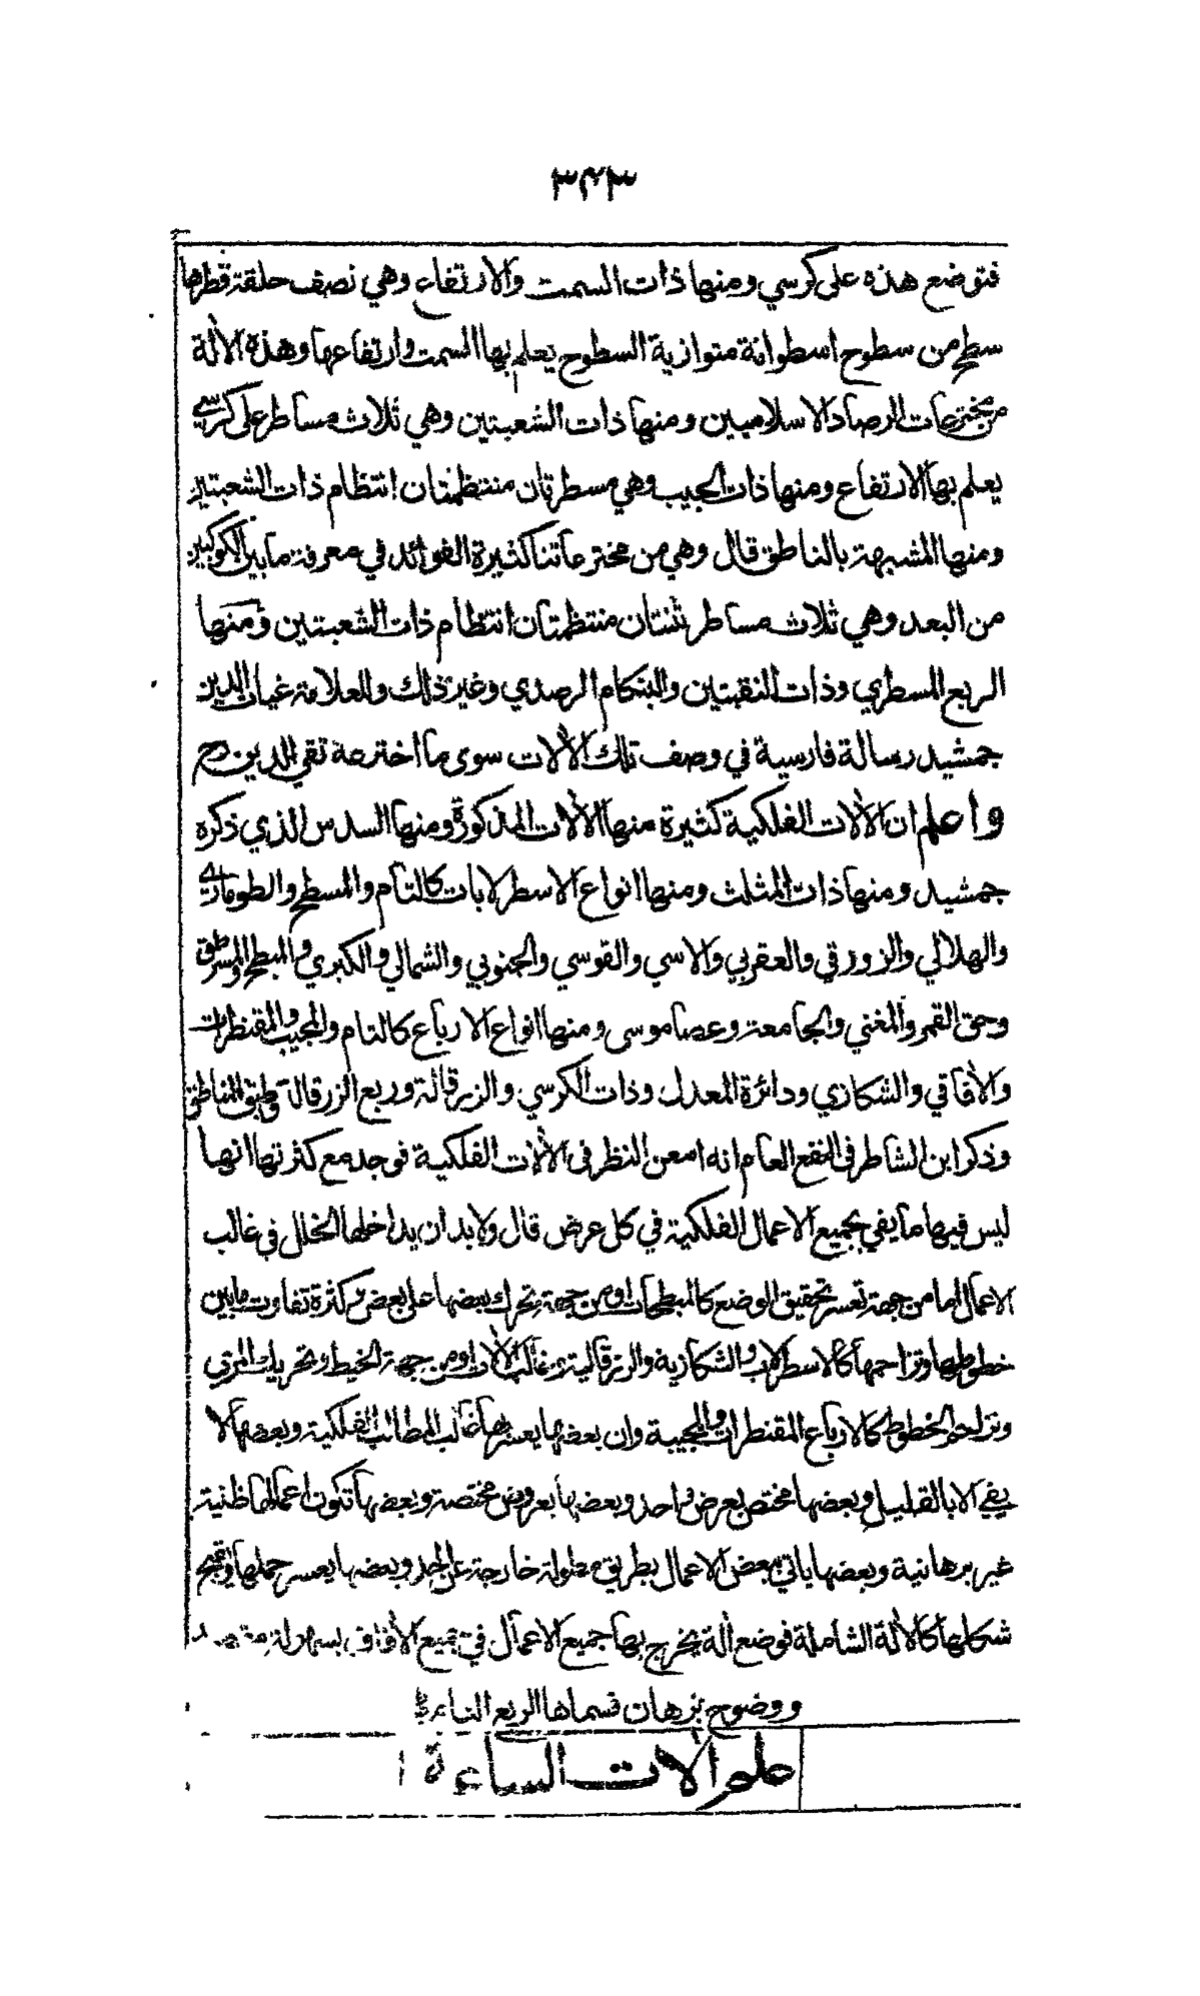 ٣٤٣
فتوضع هذه على كرسي ومنها ذات السمت والارتفاع وهي نصف حلقة قطرها
سطح من سطوح اسطوانة متوازية السطوح يعلم بها السمت وارتفاعها وهذه الالة
من مخترعات الرصاد الاسلاميين ومنها ذات الشعبتين وهي ثلاث مساطر على كرسي
يعلم بها الارتفاع ومنها ذات الجيب وهي مسطرتان منتظمتان انتظام ذات الشعبتين
ومنها المشبهة بالناطق قال وهي من مخترعاتنا كثيرة الفوائد في معرفة ما بين الكوكبين
من البعد وهي ثلاث مساطر ثنتان منتظمتان انتظام ذات الشعبتين ومنها
الربع المسطري وذات النقبتين والبنكام الرصدي وغير ذلك وللعلامة غياث الدين
جمشيد رسالة فارسية في وصف تلك الالات سوى ما اخترعه تقي الدين رح
واعلم ان الالات الفلكية كثيرة منها الالات المذكورة ومنها السدس الذي ذكره
جمشيد ومنها ذات المثلث ومنها انواع الاسطرلابات كالتام والمسطح والطوماري
والهلالي والزورقي والعقربي والاسي والقوسي والجنوبي والشمالي والكبري والمبطح والمسرطق
وحق القمر والمغني والجامعة وعصا موسى ومنها انواع الارباع كالتام والمجيب والمقنطرات
والآفاقي والشكازي ودائرة المعدل وذات الكرسي والزرقالة وربع الزرقالة وطبق المناطق
وذكر ابن الشاطر في النفع العام انه امعن النظر في الآلات الفلكية فوجد مع كثرتها انها
ليس فيها ما يفي بجميع الاعمال الفلكية في كل عرض قال ولا بد ان يداخلها الخلل في غالب
الاعمال اما من جهة تعسر تحقيق الوضع كالمبطحات او من جهة تحرك بعضها على بعض وكثرة تفاوت ما بين
خطوطها وتزاحمها كالاسطرلاب والشكازية والزرقالية وغالب الآلات او من جهة الخيط وتحريك المري
وتزاحم الخطوط كالارباع المقنطرات والمجيبة وان بعضها يعسر بها غالب المطالب الفلكية وبعضها لا
يفي الا بالقليل وبعضها مختص بعرض واحد وبعضها بعروض مختصة وبعضها تكون اعمالها ظنية
غير برهانية وبعضها ياتي ببعض الاعمال بطريق مطولة خارجة عن الحد وبعضها يعسر حملها ويقبح
شكلها كالآلة الشاملة فوضع آلة يخرج بها جميع الاعمال في جميع الآفاق بسهولة مقصد
ووضوح برهان فسماها الربع التام
علم آلات الساعة